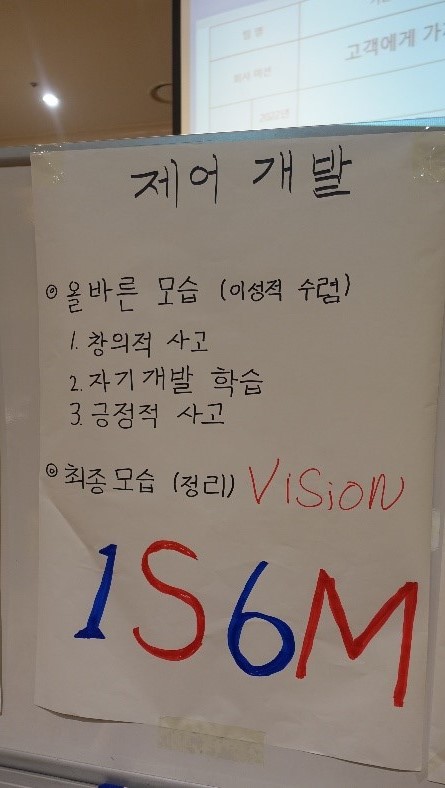 팀 명
고객에게 가
회사 비전
2022년
제어 개발
◎ 올바른 모습 (이성적 수렴)
1. 창의적 사고
2. 자기개발 학습
3. 긍정적 사고
◎ 최종모습 (정리) ViSioN
1S6M